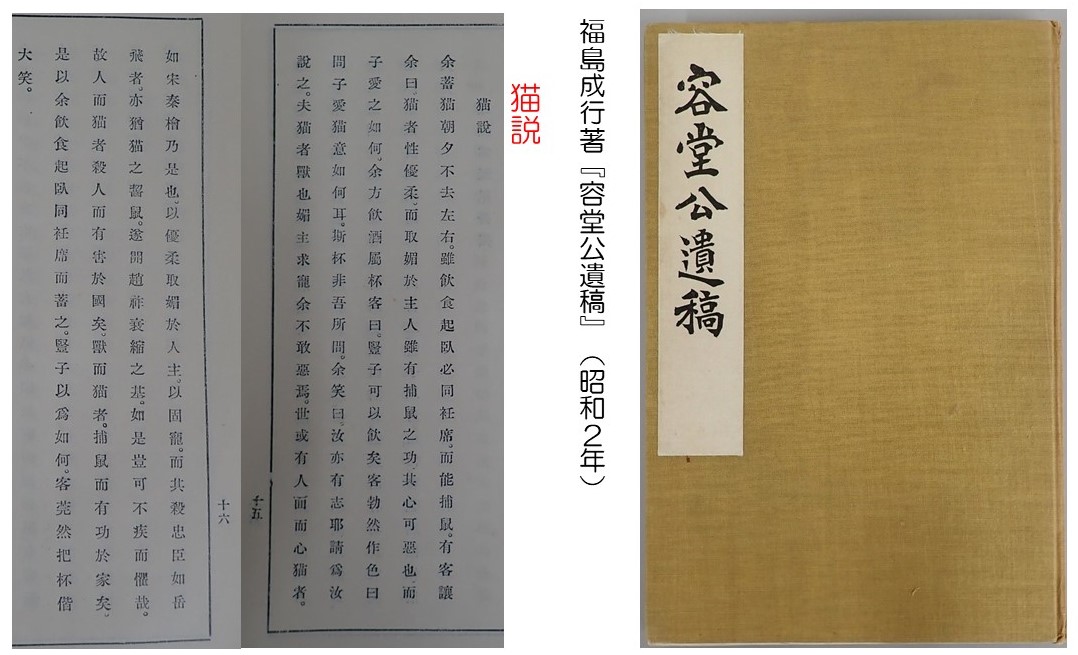 容堂公遺稿
福島成行著『容堂公遺稿』（昭和2年）
猫説
猫說
余蓄猫朝夕不去左右。雖飲食起臥必同衽席。而能捕鼠。有客讓
余曰。猫者性優柔。而取媚於主人雖有捕鼠之功。其心可惡也。而
子愛之如何。余方飲酒屬杯客曰。豎子可以飲矣客勃然作色曰
問子愛猫意如何耳。斯杯非吾所問。余笑曰。汝亦有志耶請爲汝
說之。夫猫者獸也媚主求寵余不敢惡焉。世或有人面而心猫者。
十五
十六
如宋秦檜乃是也。以優柔取媚於人主。以固寵。而其殺忠臣如岳
飛者。亦猶猫之嚙鼠。遂開趙祚衰縮之基。如是豈可不疾而懼哉。
故人而猫者殺人而有害於國矣。獸而猫者。捕鼠而有功於家矣。
是以余飲食起臥同衽席而蓄之。豎子以爲如何。客莞然把杯偕
大笑。